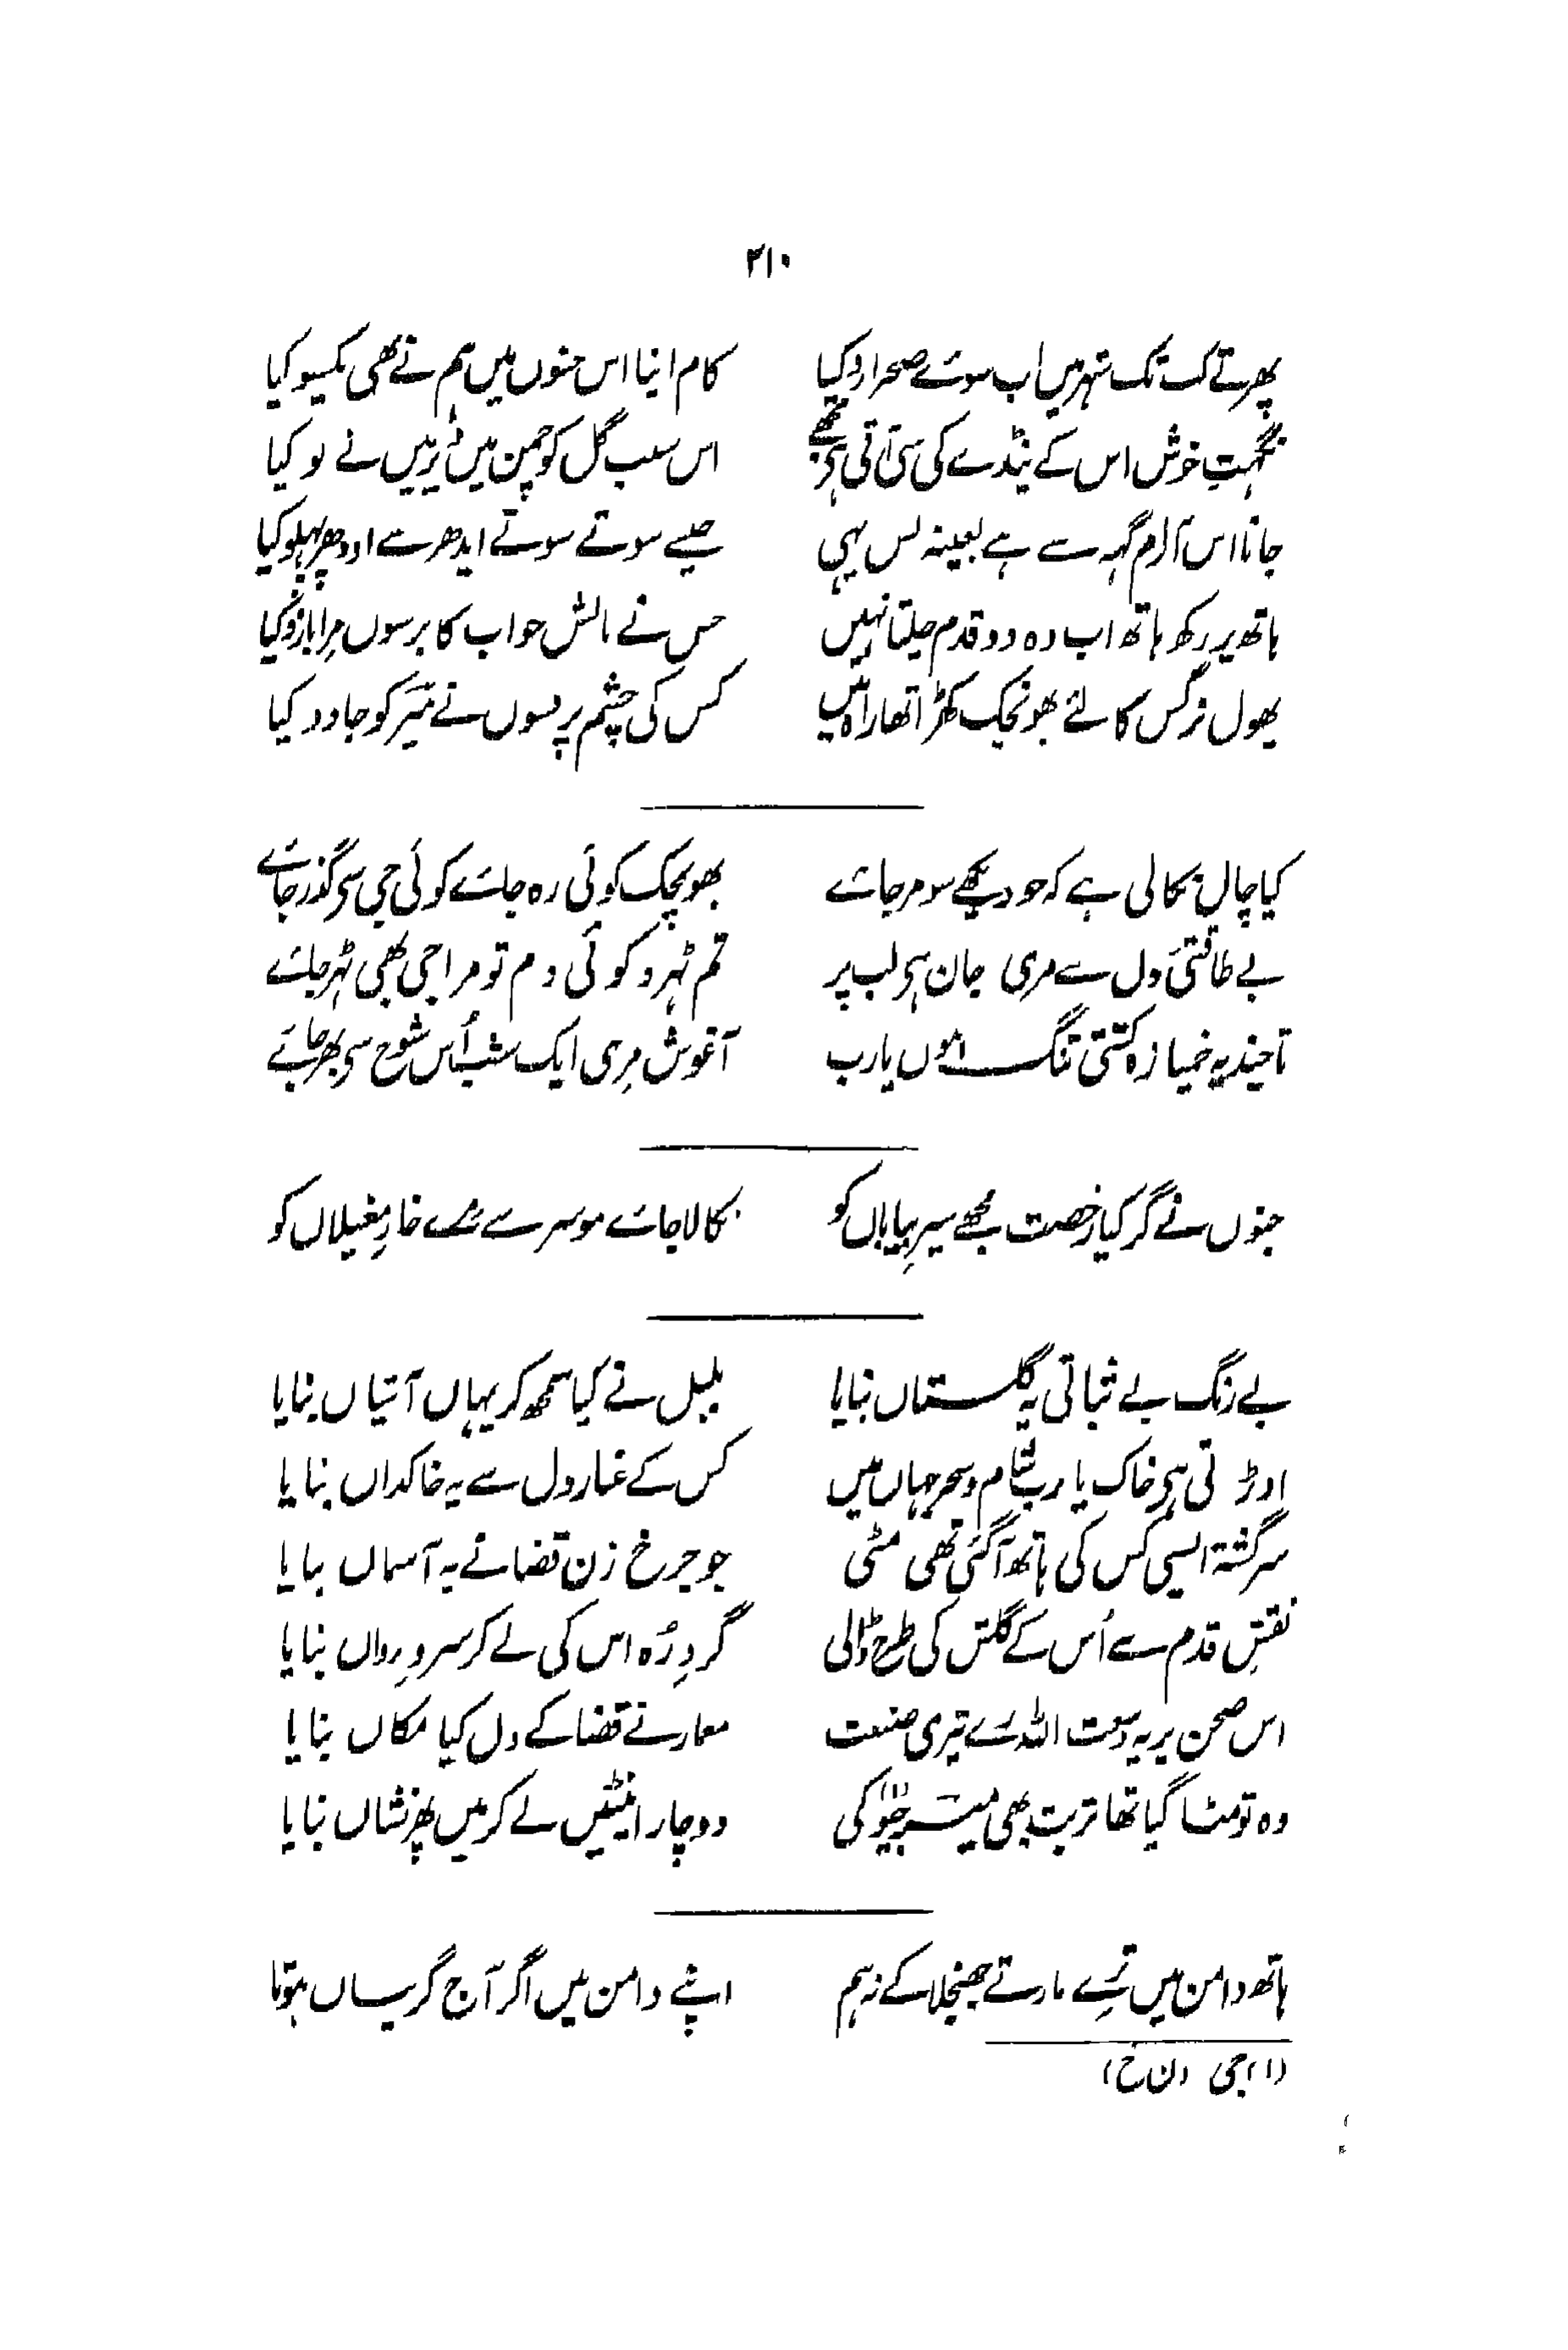 ۲۱۰
پھرتے کب تک شہر میں اب سوئے صحرا رو کیا کام اپنا اس جنوں میں ہم نے بھی یکسو کیا
نکہتِ خوش اس کے پنڈے کی سی آتی ہے مجھے اس سبب گل کو چمن میں دیر میں نے بو کیا
جانا اس آرام گہہ سے ہے بعینہ بس یہی جیسے سوتے سوتے ایدھر سے اودھر پہلو کیا
ہاتھ پر رکھ ہاتھ اب وہ دو قدم چلتا نہیں جس نے بالش خواب کا برسوں مِرا بازو کیا
پھول نرگس کا لئے بھونچک کھڑا تھا راہ میں کس کی چشم پر فسوں نے میر کو جادو کیا
کیا چال نکالی ہے کہ جو دیکھے سو مر جائے بھونچک کوئی رہ جائے کوئی جی سے گذر جائے
بے طاقتیِ دل سے مری جان ہے لب پر تم ٹہرو کوئی دم تو مرا جی بھی ٹہر جائے
تا چند یہ خمیازہ کشی تنگ ہوں یارب آغوش مِری ایک شب اُس شوخ سے بھر جائے
جنوں نے گر کیا رخصت مجھے سیرِ بیاباں کو نکالا جائے مو سر سے مرے خارِ مغیلاں کو
بے رنگ بے ثباتی یہ گلستاں بنایا بلبل نے کیا سمجھ کر یہاں آشیاں بنایا
اوڑتی ہے خاک یا رب شام و سحر جہاں میں کس کے غبار دل سے یہ خاکداں بنایا
سرگشتہ ایسی کس کی ہاتھ آ گئی تھی مٹی جو چرخ زن قضا نے یہ آسماں بنایا
نقشِ قدم سے اُس کے گلشن کی طرح ڈالی گردِ رَہ اس کی لے کر سروِ رواں بنایا
اس صحن پر یہ وسعت اللہ رے تیری صنعت معمار نے قضا کے دل کیا مکاں بنایا
وہ تو مٹا گیا تھا تربت بھی میر جیو کی دو چار اینٹیں لے کر میں پھر نشاں بنایا
ہاتھ دامن میں تِرے مارتے جھنجلا کے نہ ہم اپنے دامن میں اگر آج گریباں ہوتا
(۱) جی (ن خ)